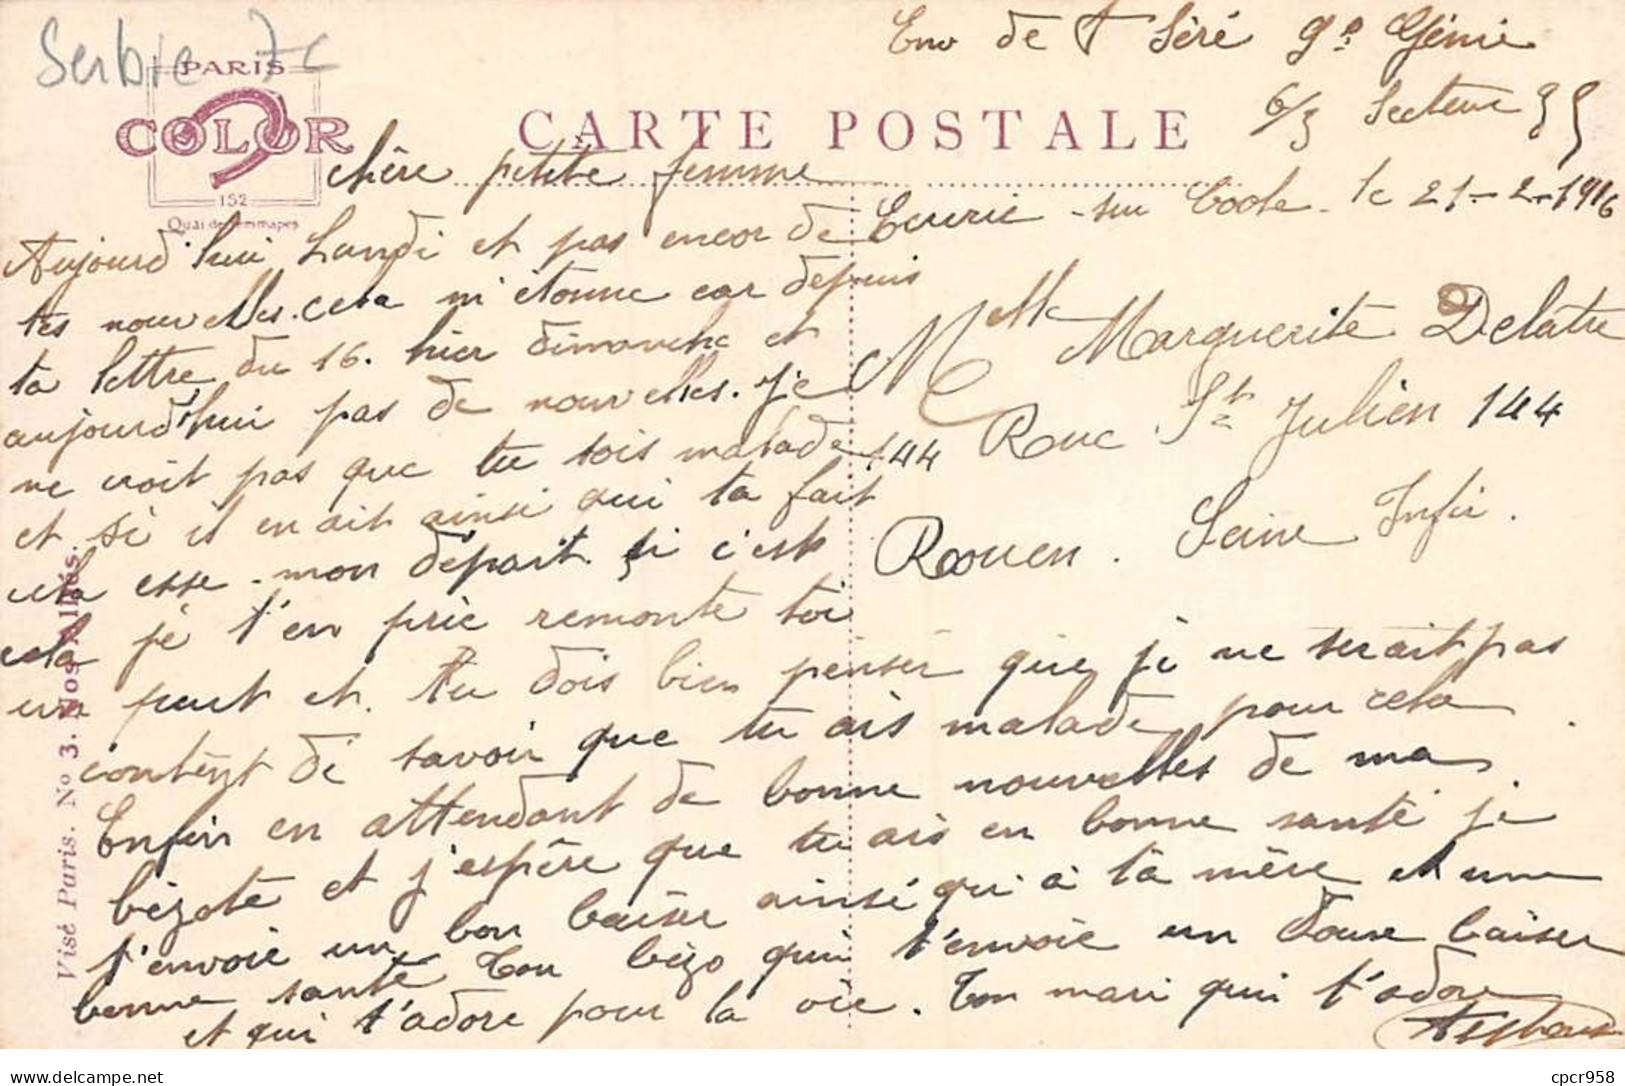 Serbie 7c
PARIS
COLOR
152
Quai de Jemmapes
CARTE POSTALE
Env de A Séré 9e Génie
6/3 Secteur 95
Ecurie-sur Coole. le 21-2-1916
Melle Marguerite Delatre
144 Rue St Julien 144
Rouen. Seine Infér.
Chère petite femme
Aujourd'hui Lundi et pas encor de
tes nouvelles. cela m'étonne car depuis
ta lettre du 16. hier dimanche et
aujourd'hui pas de nouvelles. je
ne croit pas que tu sois malade
et si il en ait ainsi qui ta fait
cela esse mon départ. si c'est
cela je t'en prie remonte toi
un peut et tu dois bien penser que je ne serait pas
content de savoir que tu ais malade pour cela.
Enfin en attendant de bonne nouvelles de ma
bézote et j'espère que tu ais en bonne santé je
t'envoie un bon baiser ainsi qui a ta mère et une
bonne santé Ton bézo qui t'envoie un douse baiser
et qui t'adore pour la vie. Ton mari qui t'adore
Visé Paris. No 3. Nos Alliés.
cpcr958